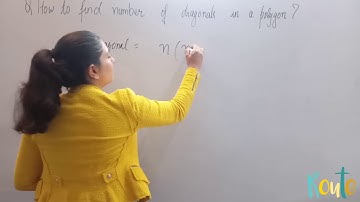 Q How to find number of diagonals in a polygon?
gonal = n(n
Route